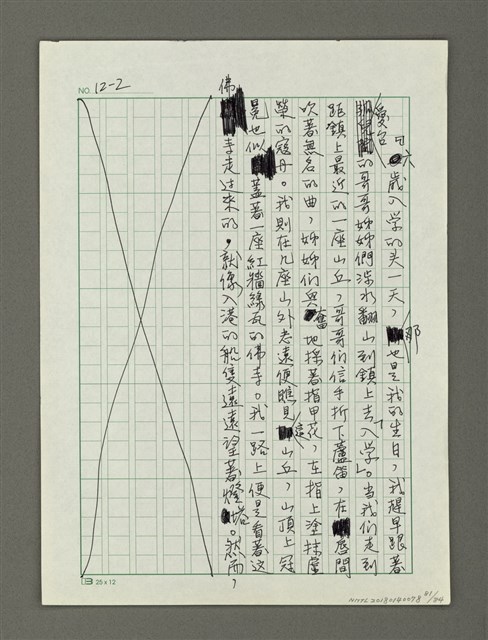 NO. 12-2
六歲入学的头一天,那也是我的生日,我趕早跟着
愛台的哥哥姊姊們涉水翻山到鎮上去「入学」。当我们走到
距鎮上最近的一座山丘,哥哥们信手折下蘆笛,在唇間
吹着無名的曲,姊姊们興奮地採着指甲花,在指上塗抹
榮的寇丹。我則在几座山外老遠便瞧見這山丘,山頂上冠
冕也似蓋着一座紅牆綠瓦的佛寺。我一路上便是看着这
佛寺走过來的,就像入港的船隻遠遠望着燈塔。然而,
25x12
NMTL20180140078 01/04